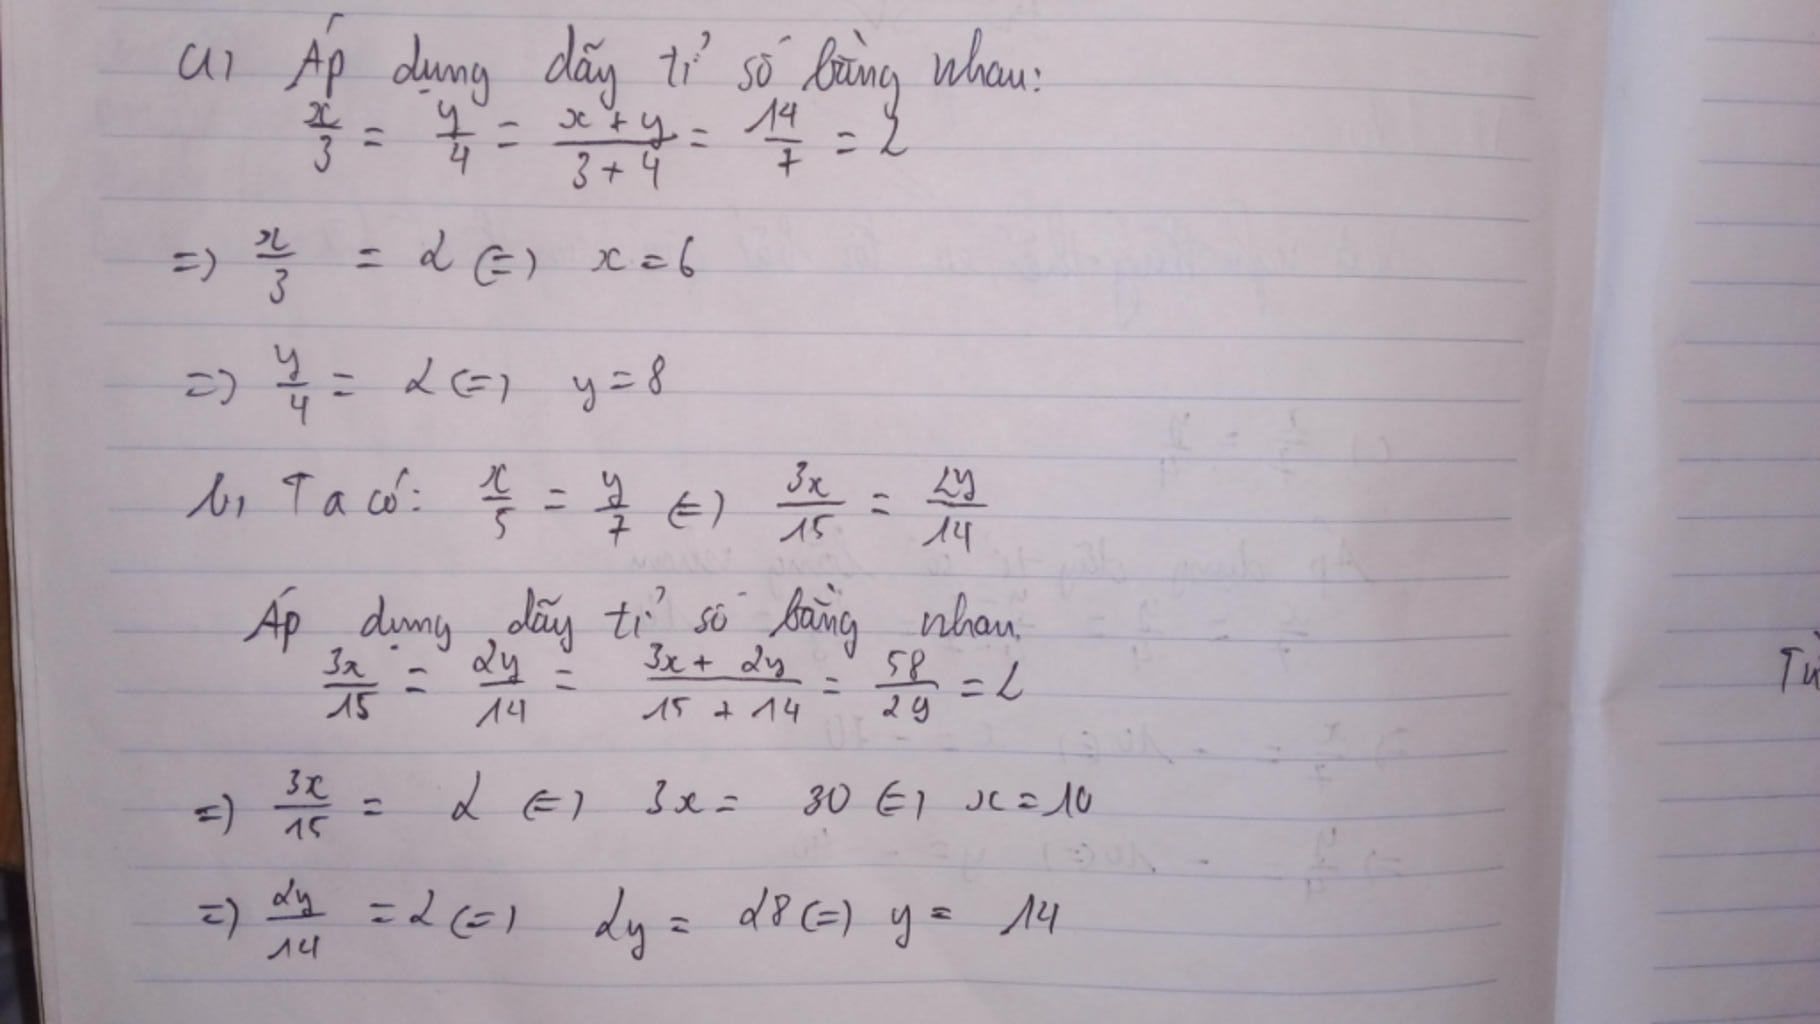 a, Áp dụng dãy tỉ số bằng nhau:
x/3 = y/4 = (x + y)/(3 + 4) = 14/7 = 2
=> x/3 = 2 <=> x = 6
=> y/4 = 2 <=> y = 8
b, Ta có: x/5 = y/7 <=> 3x/15 = 2y/14
Áp dụng dãy tỉ số bằng nhau.
3x/15 = 2y/14 = (3x + 2y)/(15 + 14) = 58/29 = 2
=> 3x/15 = 2 <=> 3x = 30 <=> x = 10
=> 2y/14 = 2 <=> 2y = 28 <=> y = 14